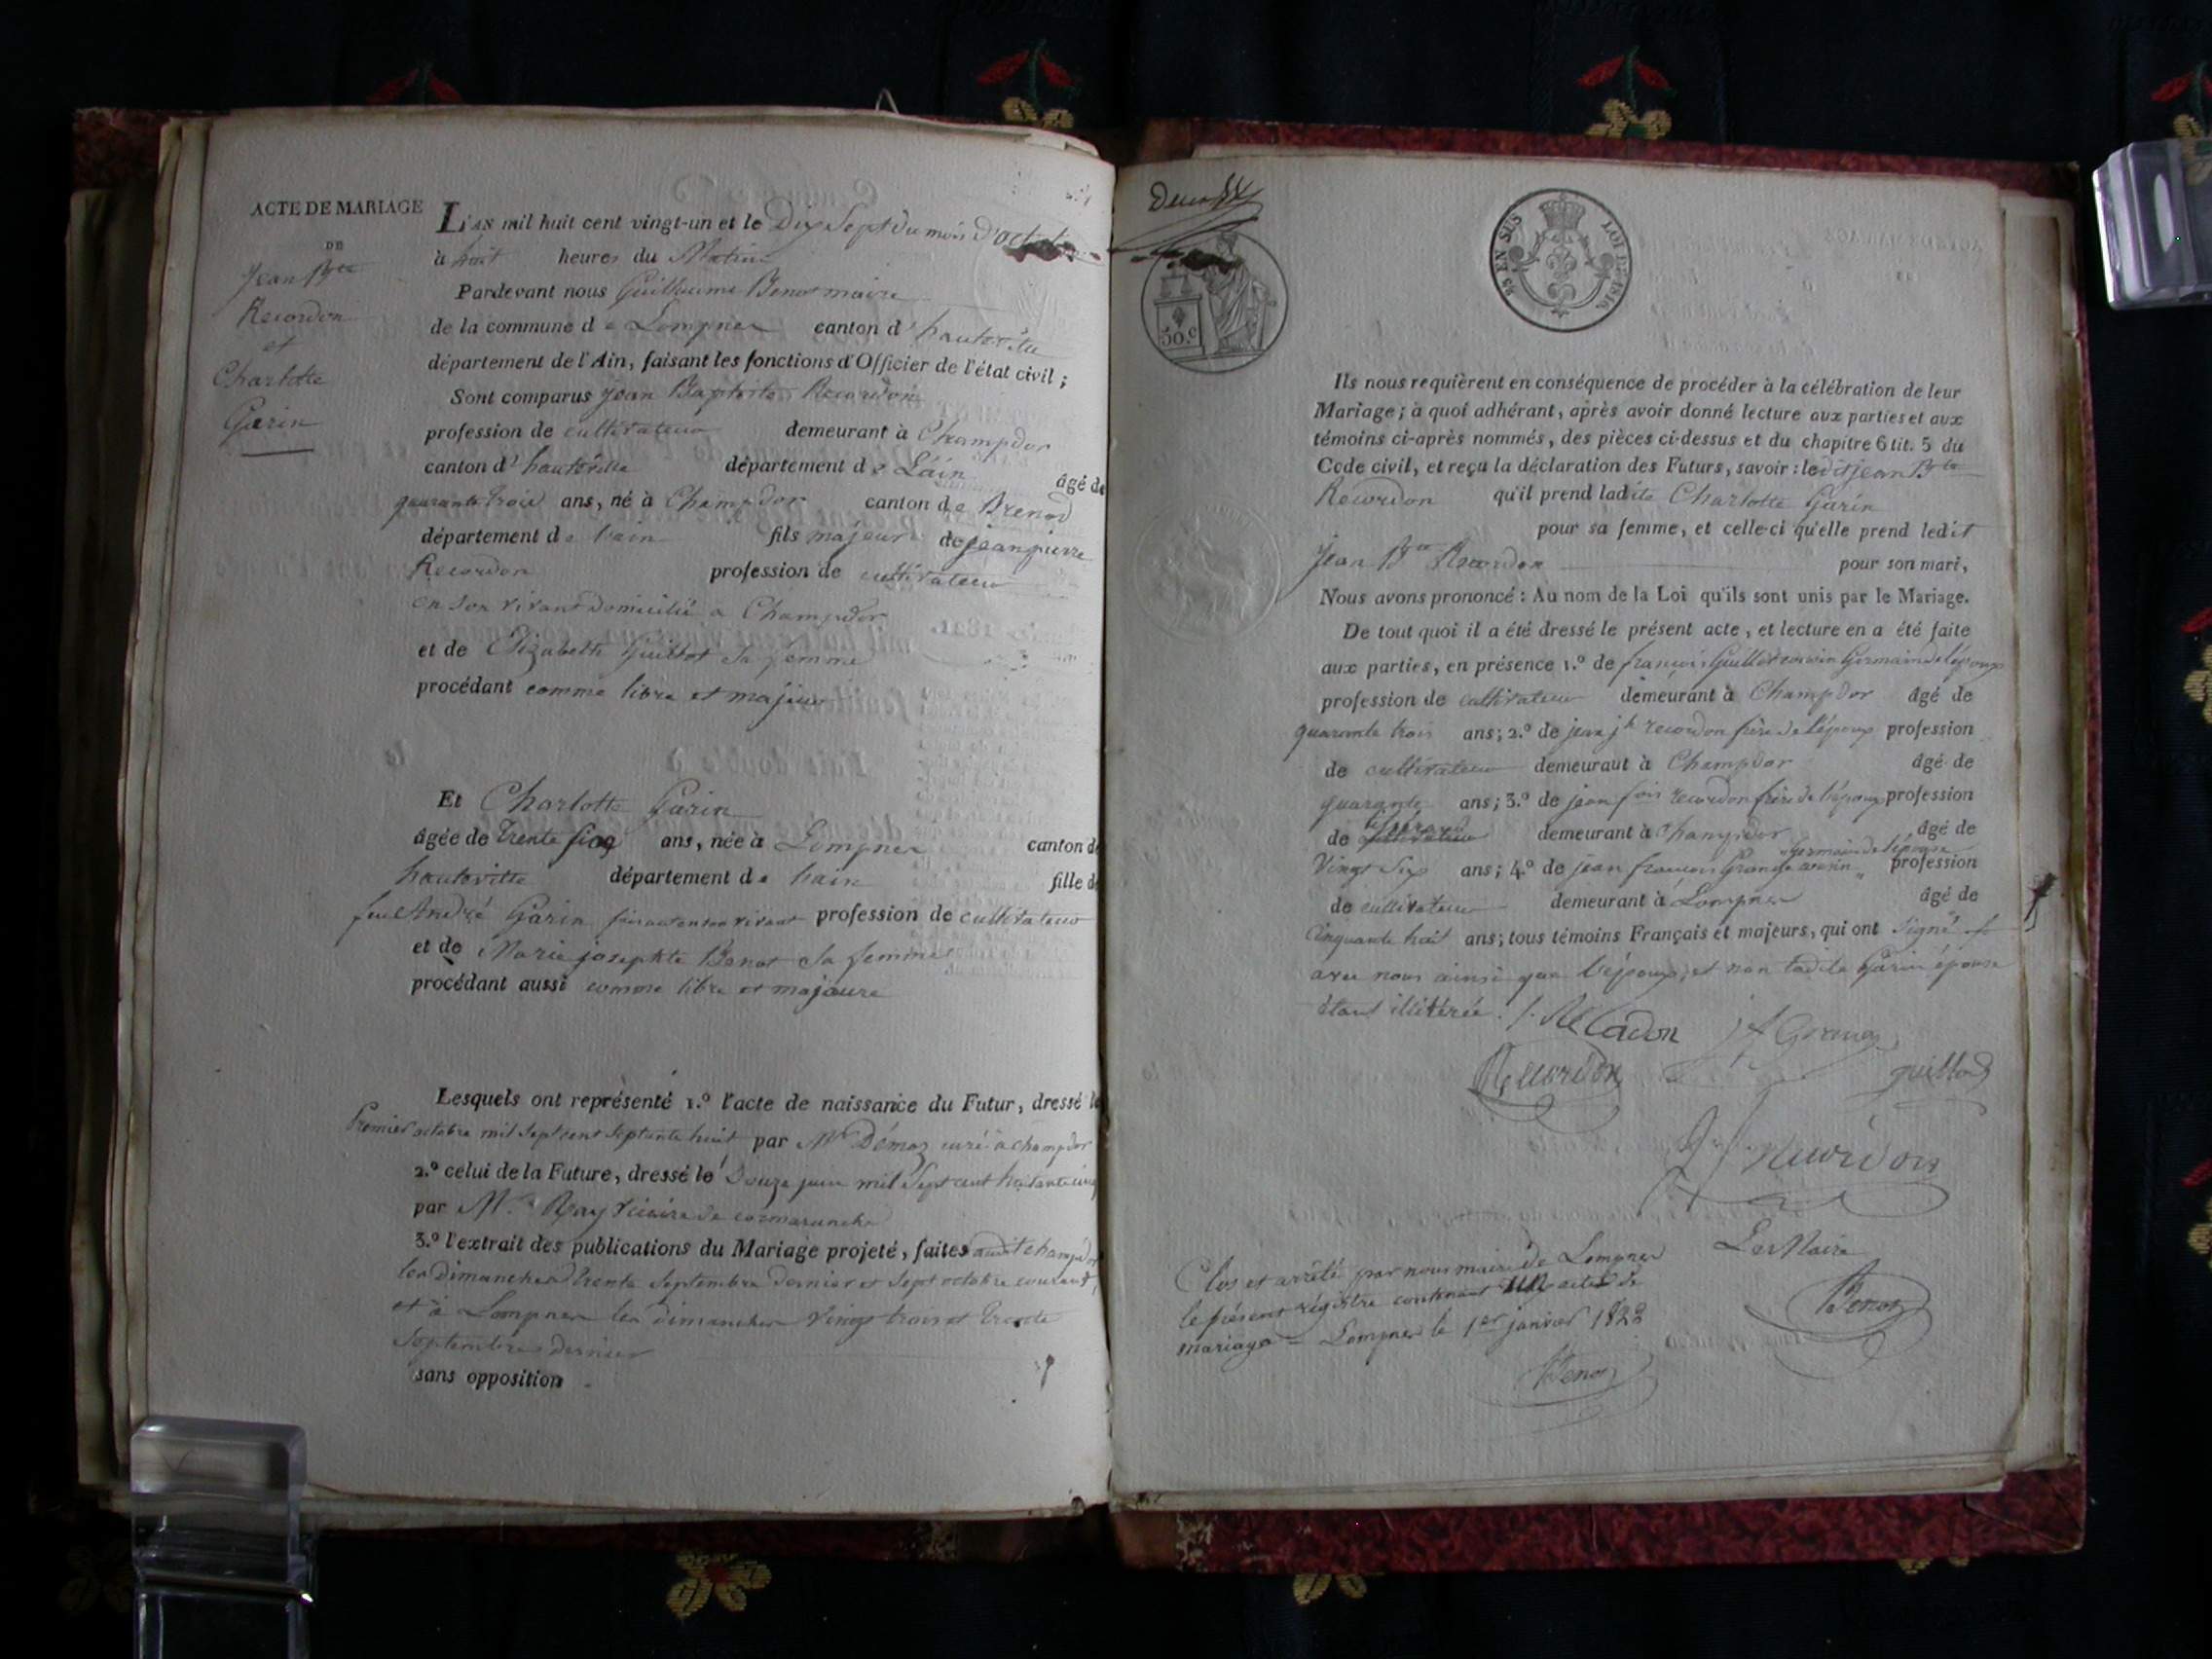 ACTE DE MARIAGE
DE
Jean Bte
Recordon
et
Charlotte
Garin
L'AN mil huit cent vingt-un et le Dix Sept du mois d'octobre
à huit heures du Matin
Pardevant nous Guillaume Benot maire
de la commune de Lompnes canton d'hauteville
département de l'Ain, faisant les fonctions d'Officier de l'état civil;
Sont comparus Jean Baptiste Recordon
profession de cultivateur demeurant à Champdor
canton d'hauteville département de Lain âgé de
quarante trois ans, né à Champdor canton de Brenod
département de lain fils majeur de jean pierre
Recordon profession de cultivateur
en son vivant domicilié a Champdor
et de Elizabeth Guillot sa femme
procédant comme libre et majeur
Et Charlotte Garin
âgée de trente sinq ans, née à Lompnes canton de
hauteville département de lain fille de
feu André Garin en son vivant profession de cultivateur
et de Marie josephte Benot sa femme
procédant aussi comme libre et majeure
Lesquels ont représenté 1.º l'acte de naissance du Futur, dressé le
Premier octobre mil sept cent septante huit par Mr Démoz curé à champdor
2.º celui de la Future, dressé le Douze juin mil sept cent huitante cinq
par Mr. Rey vicaire de cormaranche
3.º l'extrait des publications du Mariage projeté, faites audit champdor
les dimanches trente septembre dernier et sept octobre courant,
et à Lompnes les dimanches vingt trois et trente
septembre dernier
sans opposition
50.c
25 EN SUS LOI DE 1816
Ils nous requièrent en conséquence de procéder à la célébration de leur
Mariage; à quoi adhérant, après avoir donné lecture aux parties et aux
témoins ci-après nommés, des pièces ci-dessus et du chapitre 6 tit. 5 du
Code civil, et reçu la déclaration des Futurs, savoir: ledit jean Bte
Recordon qu'il prend ladite Charlotte Garin
pour sa femme, et celle-ci qu'elle prend ledit
Jean Bte Recordon pour son mari,
Nous avons prononcé: Au nom de la Loi qu'ils sont unis par le Mariage.
De tout quoi il a été dressé le présent acte, et lecture en a été faite
aux parties, en présence 1.º de françois Guillot cousin Germain de l'époux
profession de cultivateur demeurant à Champdor âgé de
quarante trois ans; 2.º de jean jh recordon frère de l'époux profession
de cultivateur demeurant à Champdor âgé de
quarante ans; 3.º de jean fois recordon frère de l'époux profession
de demeurant à champdor âgé de
Germain de l'épouse
Vingt Six ans; 4.º de jean françois Grange cousin profession
de cultivateur demeurant à Lompnes âgé de
Cinquante huit ans; tous témoins Français et majeurs, qui ont signé
avec nous ainsi que l'époux, et non ladite Garin épouse
étant illitérée.
Recordon
Guillot
Recordon
Le Maire
Benot
Clos et arrêté par nous maire de Lompnes
le présent régistre contenant UN acte de
mariage = Lompnes le 1er janvier 1822
Benot